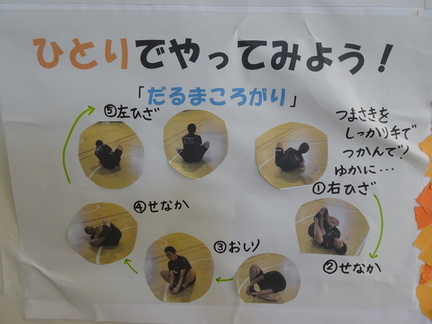 ひとりでやってみよう！
「だるまころがり」
つまさきを
しっかり手で
つかんで！
ゆかに…
①右ひざ
②せなか
③おしり
④せなか
⑤左ひざ